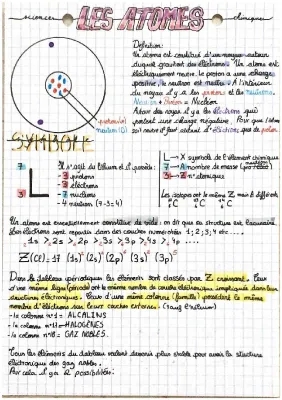 sciences
LES ATOMES
chimiques
Définition:
Un atome est constitué d'un noyau autour
duquel gravitent des électrons. Un atome est
électriquement neutre. Le proton a une charge
positive, le neutron est neutre. À l'intérieur
du noyau il y a les protons et les neutrons.
Neutron + Proton = Nucléon
Autour des noyau il y a les électrons qui
portent une charge négative. Pour que l'atome
soit neutre il faut autant d'électrons que de proton.
proton (+)
neutron (0)
SYMBOLE
7
L
3
Il s'agit du lithium et il possède:
- 3 protons
- 3 électrons
- 7 nucléons
- 4 neutron (7-3=4)
L → X symbole de l'élément chimique
7 → A nombre de masse
3 → Z n° atomique
Les isotopes ont le même Z mais A différent
C C C
Un atome est essentiellement constitué de vide: on dit que sa structure est lacunaire.
Les électrons sont répartis dans des couches numérotées 1; 2; 3; 4 etc....
1s > 2s > 2p > 3s > 3p > 4s > 4p ....
Z(Cl)=17 (1s)² (2s)² (2p)⁶ (3s)² (3p)⁵
Dans le tableau périodiques les éléments sont classés par Z croissant. Ceux
d'une même ligne (période) ont le même nombre de couches électroniques impliquées dans leur
structures électroniques. Ceux d'une même colonne (famille) possèdent le même
nombre d'électrons sur leur couches externes. (sauf l'hélium)
- la colonne n°1 = ALCALINS
- la colonne n°17 = HALOGÈNES
- la colonne n°18 = GAZ NOBLES.
Tous les éléments du tableau veulent devenir plus stable pour avoir la structure
électronique des gaz nobles.
Par cela il y a 2 possibilités: